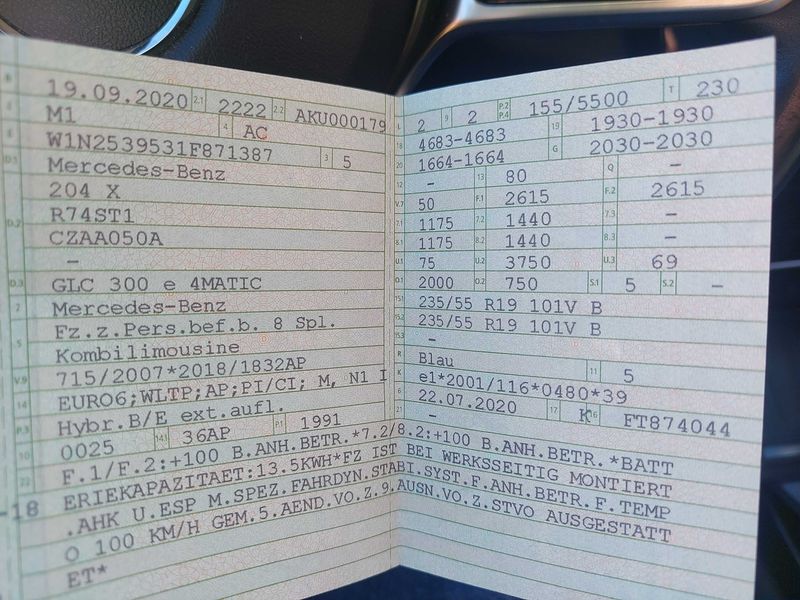 B 19.09.2020 2.1 2222 2.2 AKU000179
J M1 4 AC
E W1N2539531F871387 3 5
D.1 Mercedes-Benz
204 X
D.2 R74ST1
CZAA050A
–
D.3 GLC 300 e 4MATIC
2 Mercedes-Benz
Fz.z.Pers.bef.b. 8 Spl.
5 Kombilimousine
V.9 715/2007*2018/1832AP
14 EURO6;WLTP;AP;PI/CI; M, N1 I
P.3 Hybr.B/E ext.aufl.
10 0025 14.1 36AP P.1 1991
L 2 9 2 P.2 P.4 155/5500 T 230
18 4683-4683 19 1930-1930
20 1664-1664 G 2030-2030
12 – 13 80 Q –
V.7 50 F.1 2615 F.2 2615
7.1 1175 7.2 1440 7.3 –
8.1 1175 8.2 1440 8.3 –
U.1 75 U.2 3750 U.3 69
O.1 2000 O.2 750 S.1 5 S.2 –
15.1 235/55 R19 101V B
15.2 235/55 R19 101V B
15.3 –
R Blau 11 5
K e1*2001/116*0480*39
6 22.07.2020 17 K 16 FT874044
21 –
22 F.1/F.2:+100 B.ANH.BETR.*7.2/8.2:+100 B.ANH.BETR.*BATT
ERIEKAPAZITAET:13.5KWH*FZ IST BEI WERKSSEITIG MONTIERT
-18 .AHK U.ESP M.SPEZ.FAHRDYN.STABI.SYST.F.ANH.BETR.F.TEMP
O 100 KM/H GEM.5.AEND.VO.Z.9.AUSN.VO.Z.STVO AUSGESTATT
ET*